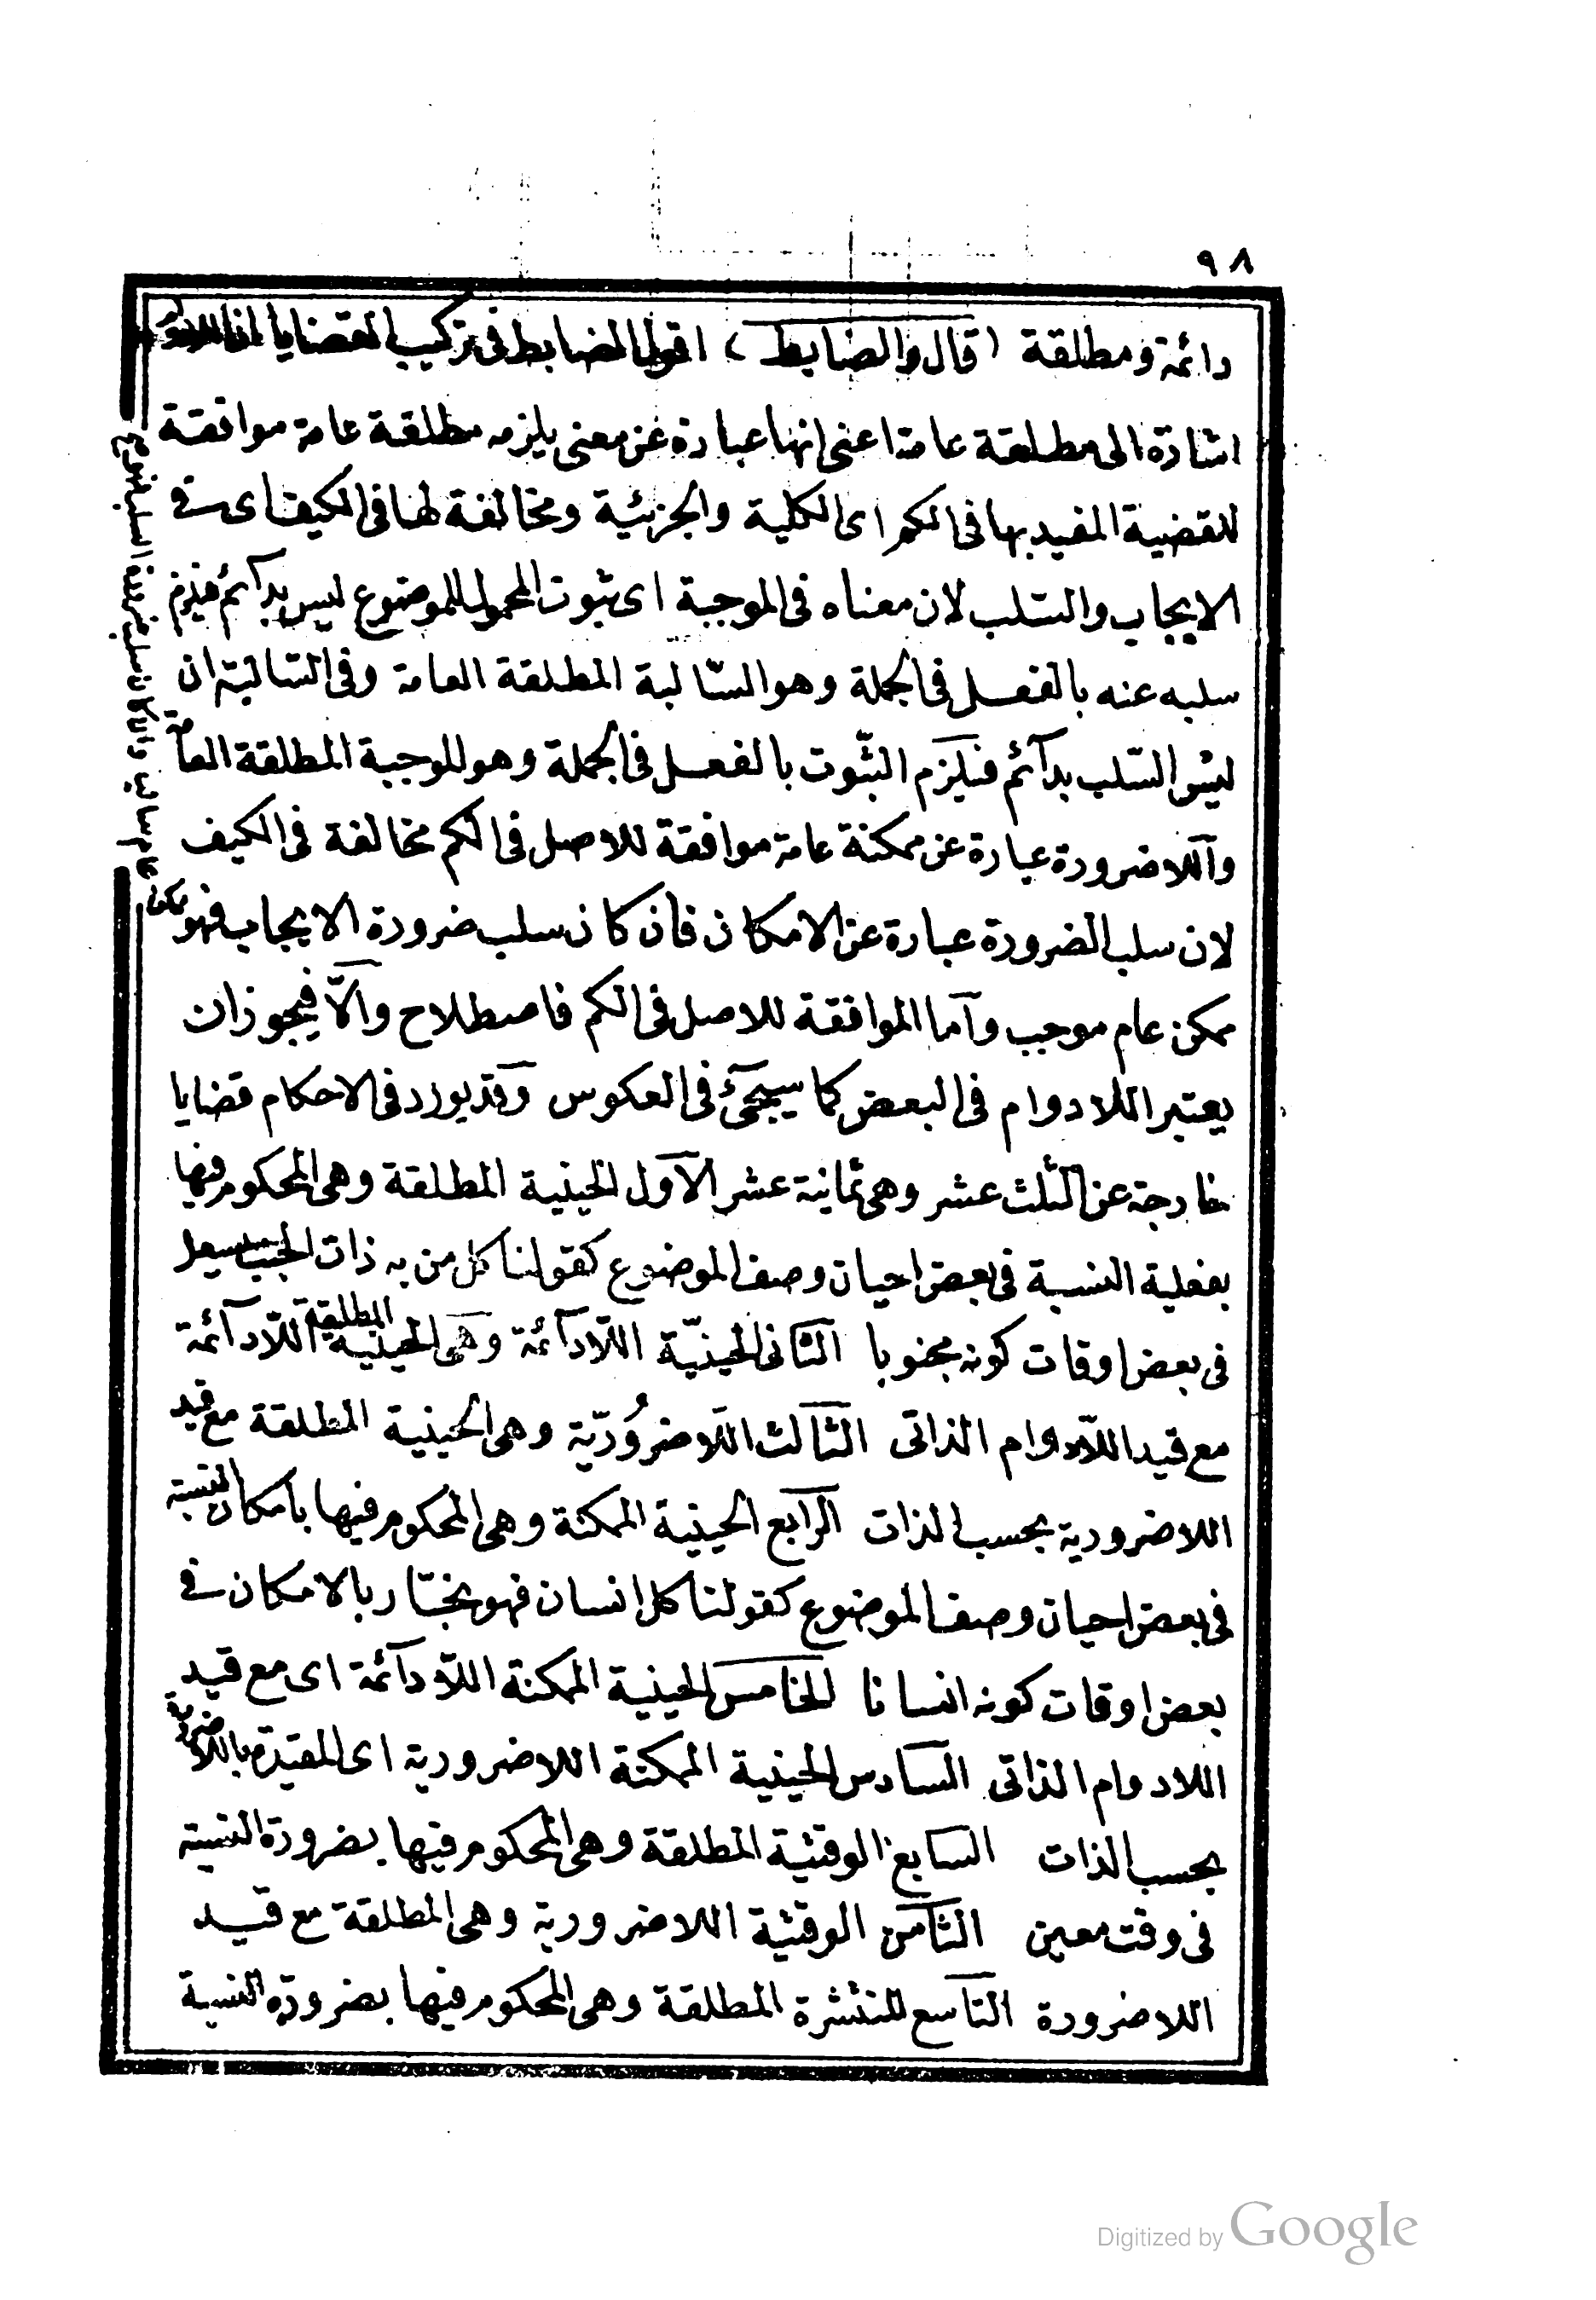 ٩٨
دائمة ومطلقة (قال والضابط) اقول الضابط فى تركيب القضايا ان اللادوام
اشارة الى مطلقة عامة اعنى انها عبارة عن معنى يلزمه مطلقة عامة موافقة
للقضية المقيد بها فى الكم اى الكلية والجزئية ومخالفة لها فى الكيف اى فى
الايجاب والسّلب لان معناه فى الموجبة اى ثبوت المحمول للموضوع ليس بدآئم فيلزم
سلبه عنه بالفعل فى الجملة وهو السّالبة المطلقة العامة وفى السّالبة ان
ليس السّلب بدآئم فيلزم الثّبوت بالفعل فى الجملة وهو الموجبة المطلقة العامة
وآللاضرورة عبارة عن ممكنة عامة موافقة للاصل فى الكم مخالفة فى الكيف
لان سلب الضرورة عبارة عن الامكان فان كان سلب ضرورة الايجاب فهو ممكن
عام سالب وان كان سلب ضرورة السلب فهو
ممكن عام موجب وآما الموافقة للاصل فى الكم فاصطلاح والّا فيجوز ان
يعتبر اللادوام فى البعض كما سيجئ فى العكوس وقد يورد فى الاحكام قضايا
خارجة عن الثلث عشر وهى ثمانية عشر الآول الحينية المطلقة وهى المحكوم فيها
بفعلية النسبة فى بعض احيان وصف الموضوع كقولنا كل من به ذات الجنب يسعل
فى بعض اوقات كونه مجنوبا الثانى الحينيّة اللّادآئمة وهى الحينية المطلقة اللّادآئمة
مع قيد اللّادوام الذاتى الثالث اللّاضرُوريّة وهى الحينية المطلقة مع قيد
اللاضرورية بحسب الذات الرابع الحينية الممكنة وهى المحكوم فيها بامكان النسبة
فى بعض احيان وصف الموضوع كقولنا كل انسان فهو نجّار بالامكان فى
بعض اوقات كونه انسانا الخامس الحينية الممكنة اللّادآئمة اى مع قيد
اللادوام الذاتى السادس الحينية الممكنة اللاضرورية اى المقيدة باللاضرورة
بحسب الذات السابع الوقتية المطلقة وهى المحكوم فيها بضرورة النسبة
فى وقت معين الثامن الوقتية اللاضرورية وهى المطلقة مع قيد
اللاضرورة التاسع المنتشرة المطلقة وهى المحكوم فيها بضرورة النسبة
Digitized by Google